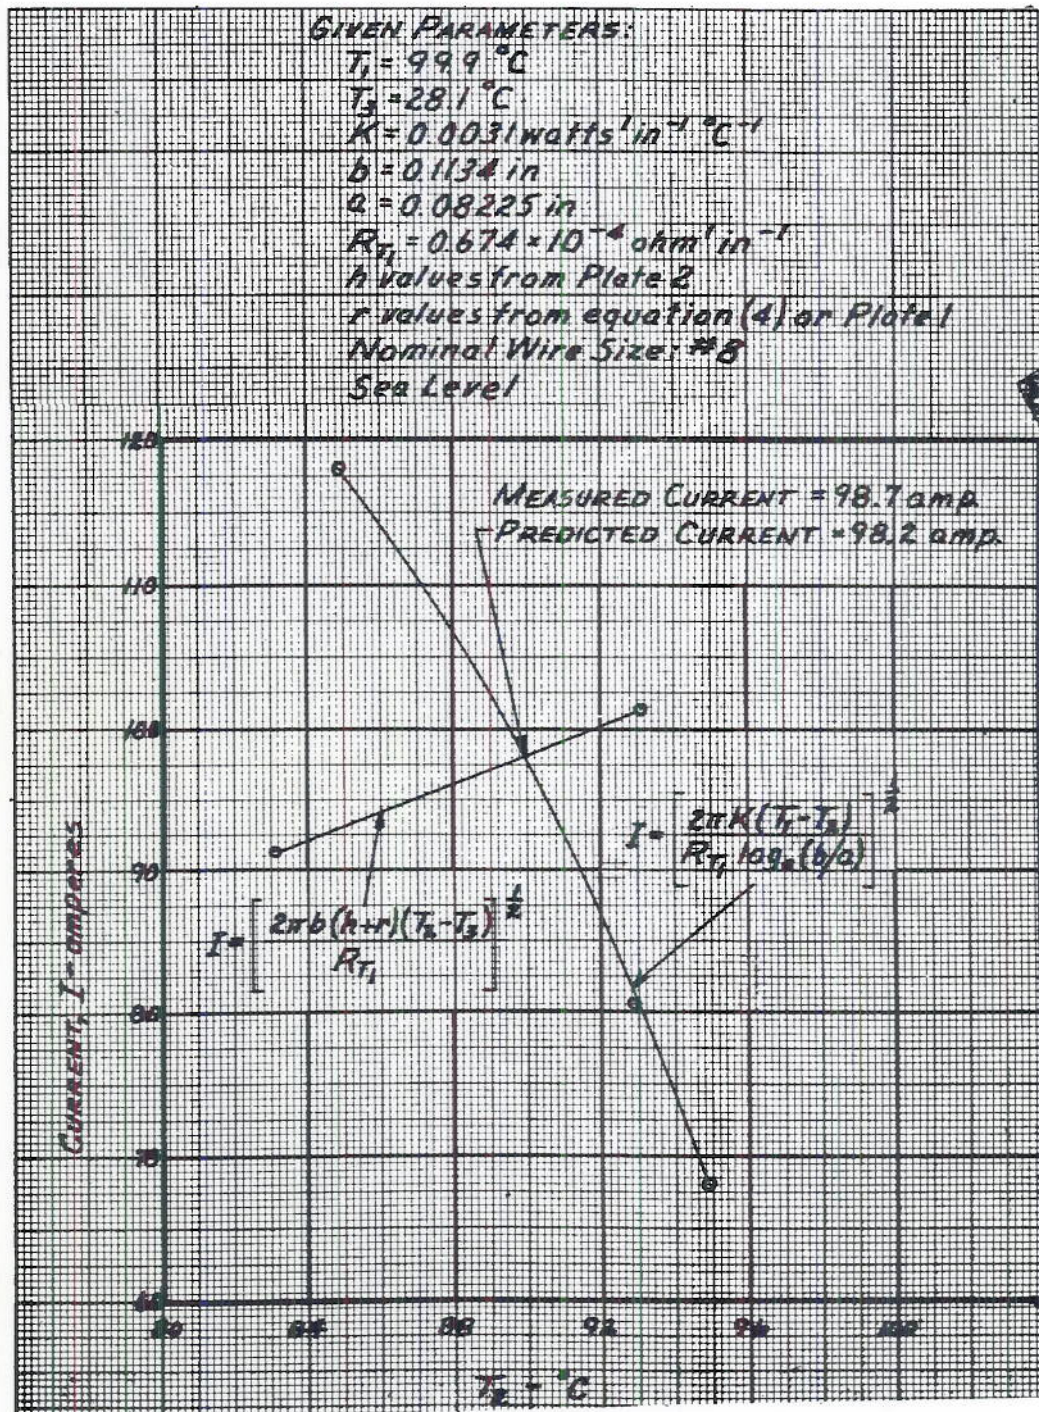 GIVEN PARAMETERS:
T₁ = 99.9 °C
T₃ = 28.1 °C
K = 0.0031 watts¹ in⁻¹ °C⁻¹
b = 0.1134 in
a = 0.08225 in
R_T₁ = 0.674 × 10⁻⁴ ohm¹ in⁻¹
h values from Plate 2
r values from equation (4) or Plate 1
Nominal Wire Size: #8
Sea Level
120
MEASURED CURRENT = 98.7 amp.
PREDICTED CURRENT = 98.2 amp.
110
100
I = [2πK(T₁-T₂) / R_T₁ logₑ(b/a)]^½
90
I = [2πb(h+r)(T₂-T₃) / R_T₁]^½
80
70
60
CURRENT, I - amperes
80 84 88 92 96 100
T₂ - °C